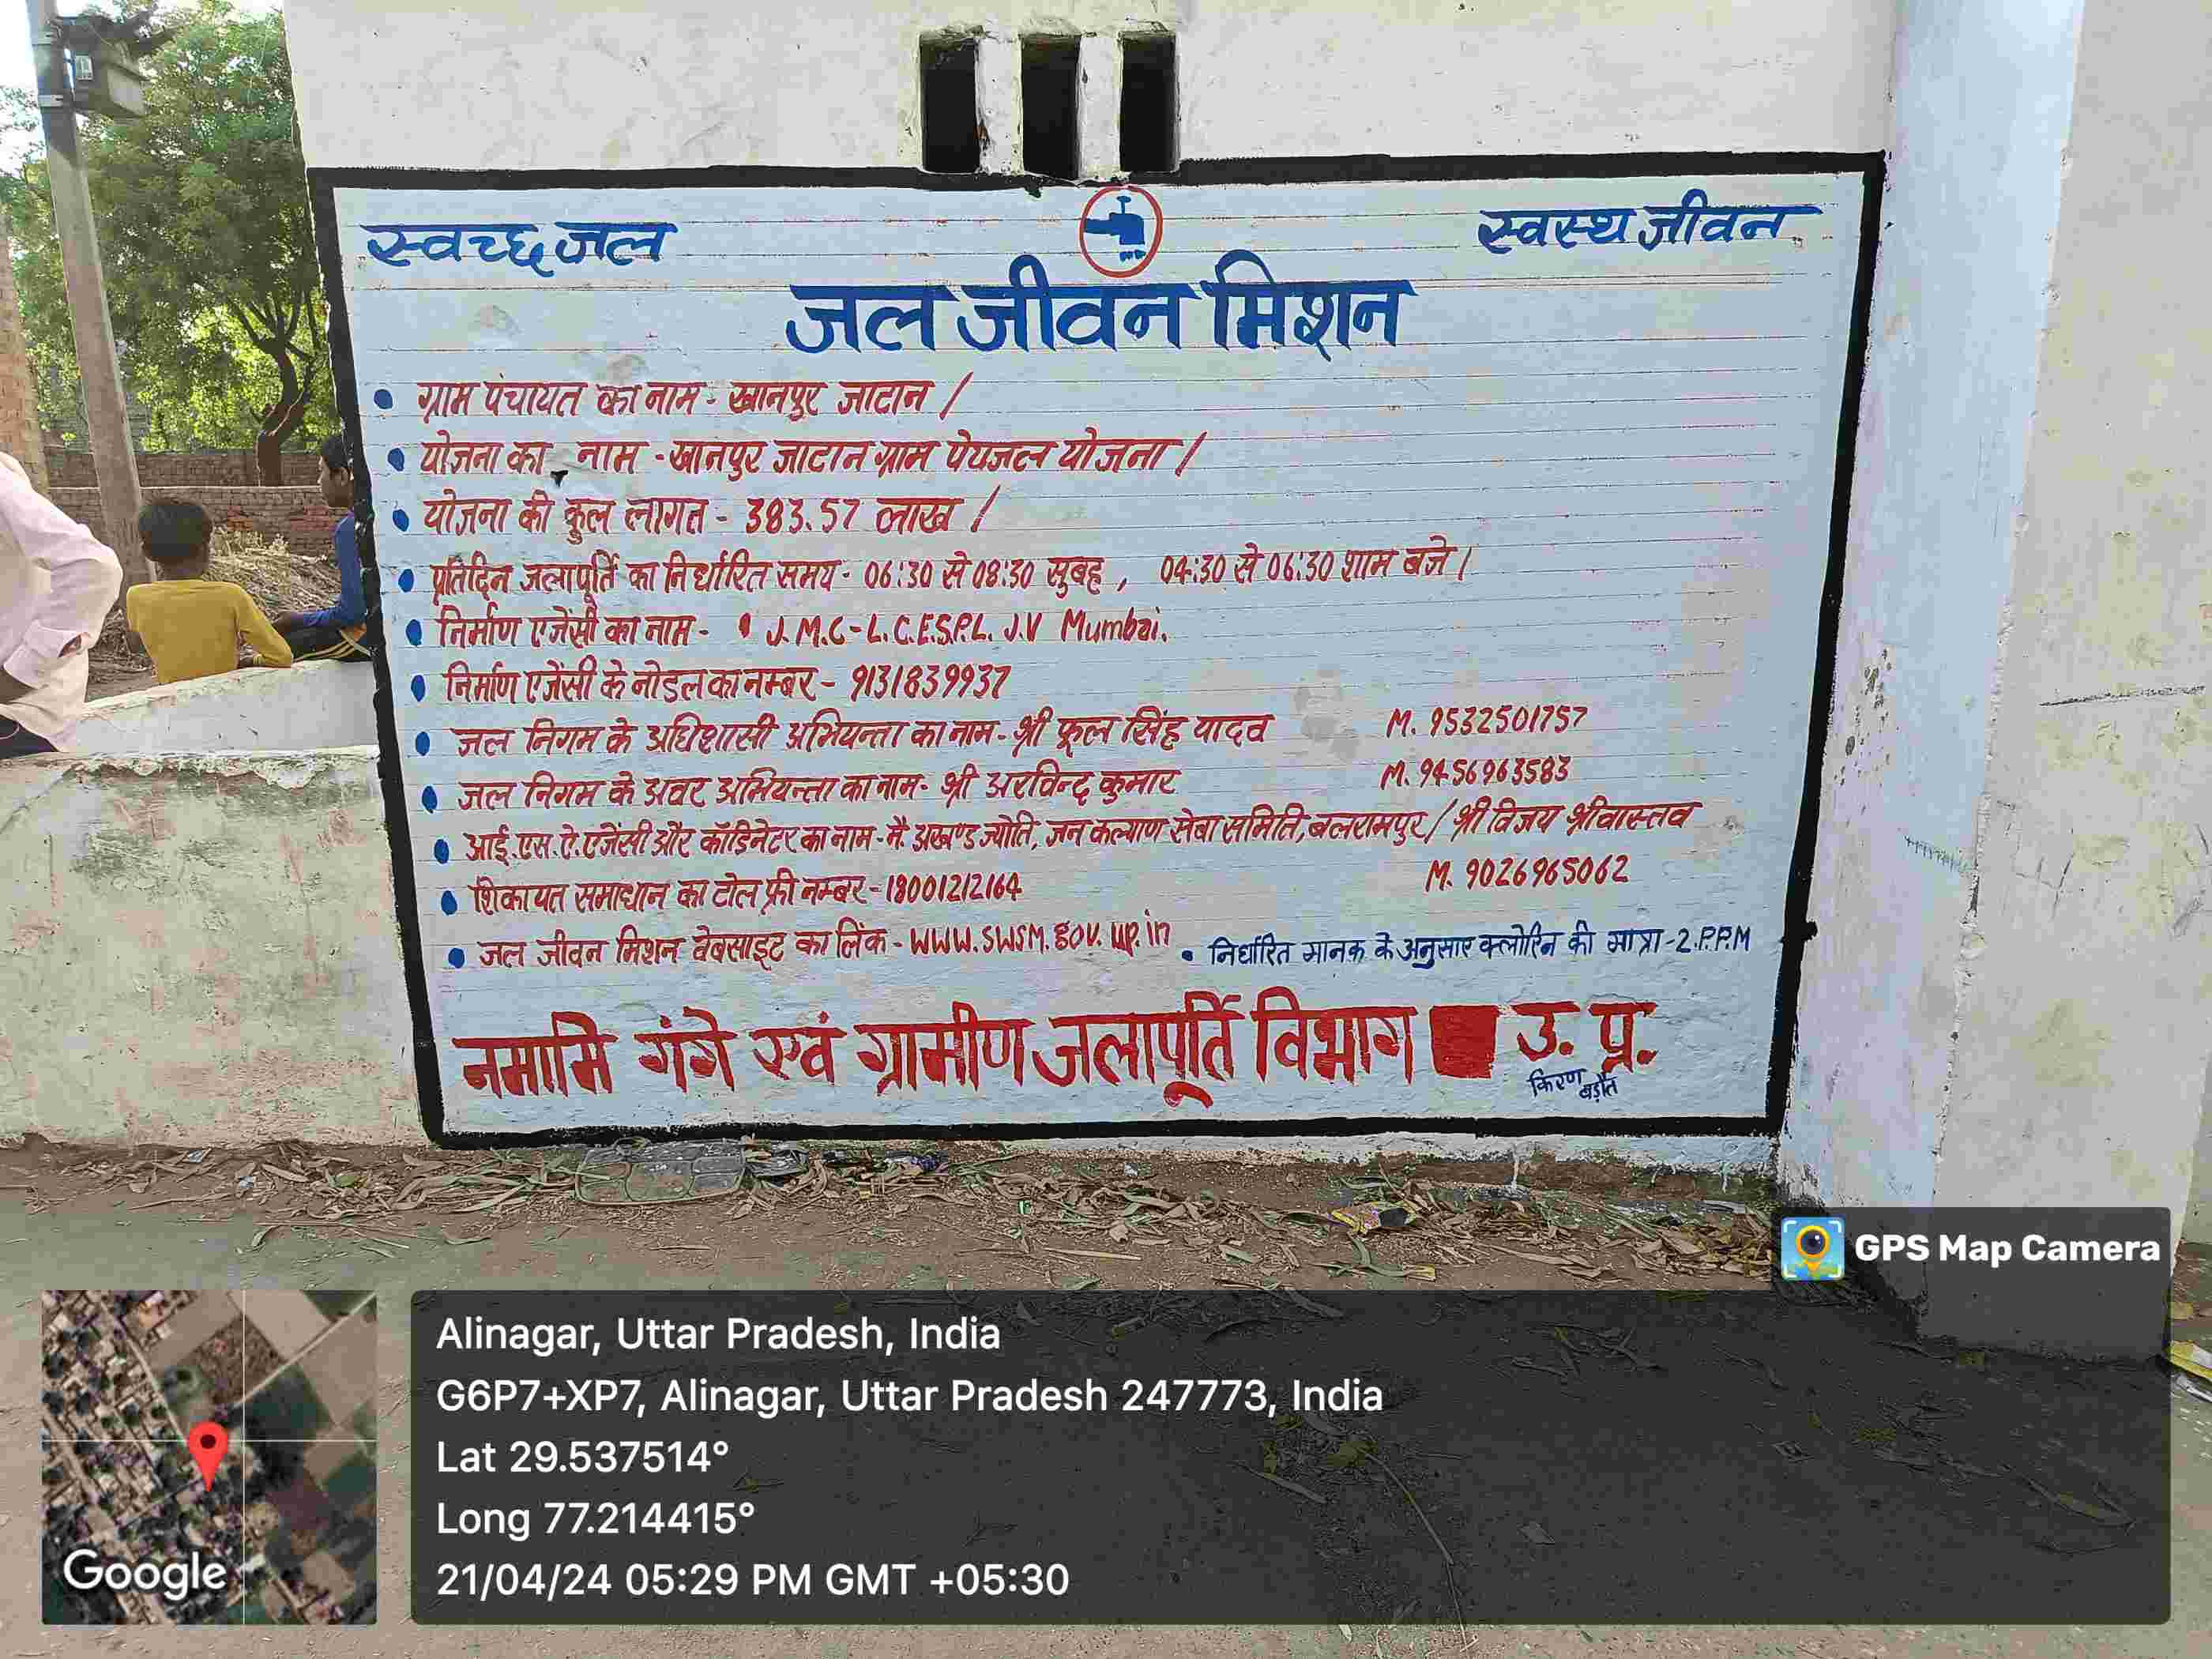 स्वच्छ जल
स्वस्थ जीवन
जल जीवन मिशन
• ग्राम पंचायत का नाम - खानपुर जाटान /
• योजना का नाम - खानपुर जाटान ग्राम पेयजल योजना /
• योजना की कुल लागत - 383.57 लाख /
• प्रतिदिन जलापूर्ति का निर्धारित समय - 06:30 से 08:30 सुबह , 04:30 से 06:30 शाम बजे /
• निर्माण एजेंसी का नाम - J.M.C-L.C.E.S.P.L. J.V Mumbai.
• निर्माण एजेंसी के नोडल का नम्बर - 9131839937
• जल निगम के अधिशासी अभियन्ता का नाम - श्री फूल सिंह यादव M. 9532501757
• जल निगम के अवर अभियन्ता का नाम - श्री अरविन्द कुमार M. 9456963583
• आई.एस.ऐ. एजेंसी और कॉडिनेटर का नाम - मै. अखण्ड ज्योति, जन कल्याण सेबा समिति, बलरामपुर / श्री विजय श्रीवास्तव
M. 9026965062
• शिकायत समाधान का टोल फ्री नम्बर - 18001212164
• जल जीवन मिशन वेबसाइट का लिंक - WWW.SWSM.gov.up.in
• निर्धारित मानक के अनुसार क्लोरिन की मात्रा - 2.P.P.M
नमामि गंगे एवं ग्रामीण जलापूर्ति विभाग उ. प्र.
किरण बड़ौत
GPS Map Camera
Alinagar, Uttar Pradesh, India
G6P7+XP7, Alinagar, Uttar Pradesh 247773, India
Lat 29.537514°
Long 77.214415°
21/04/24 05:29 PM GMT +05:30
Google